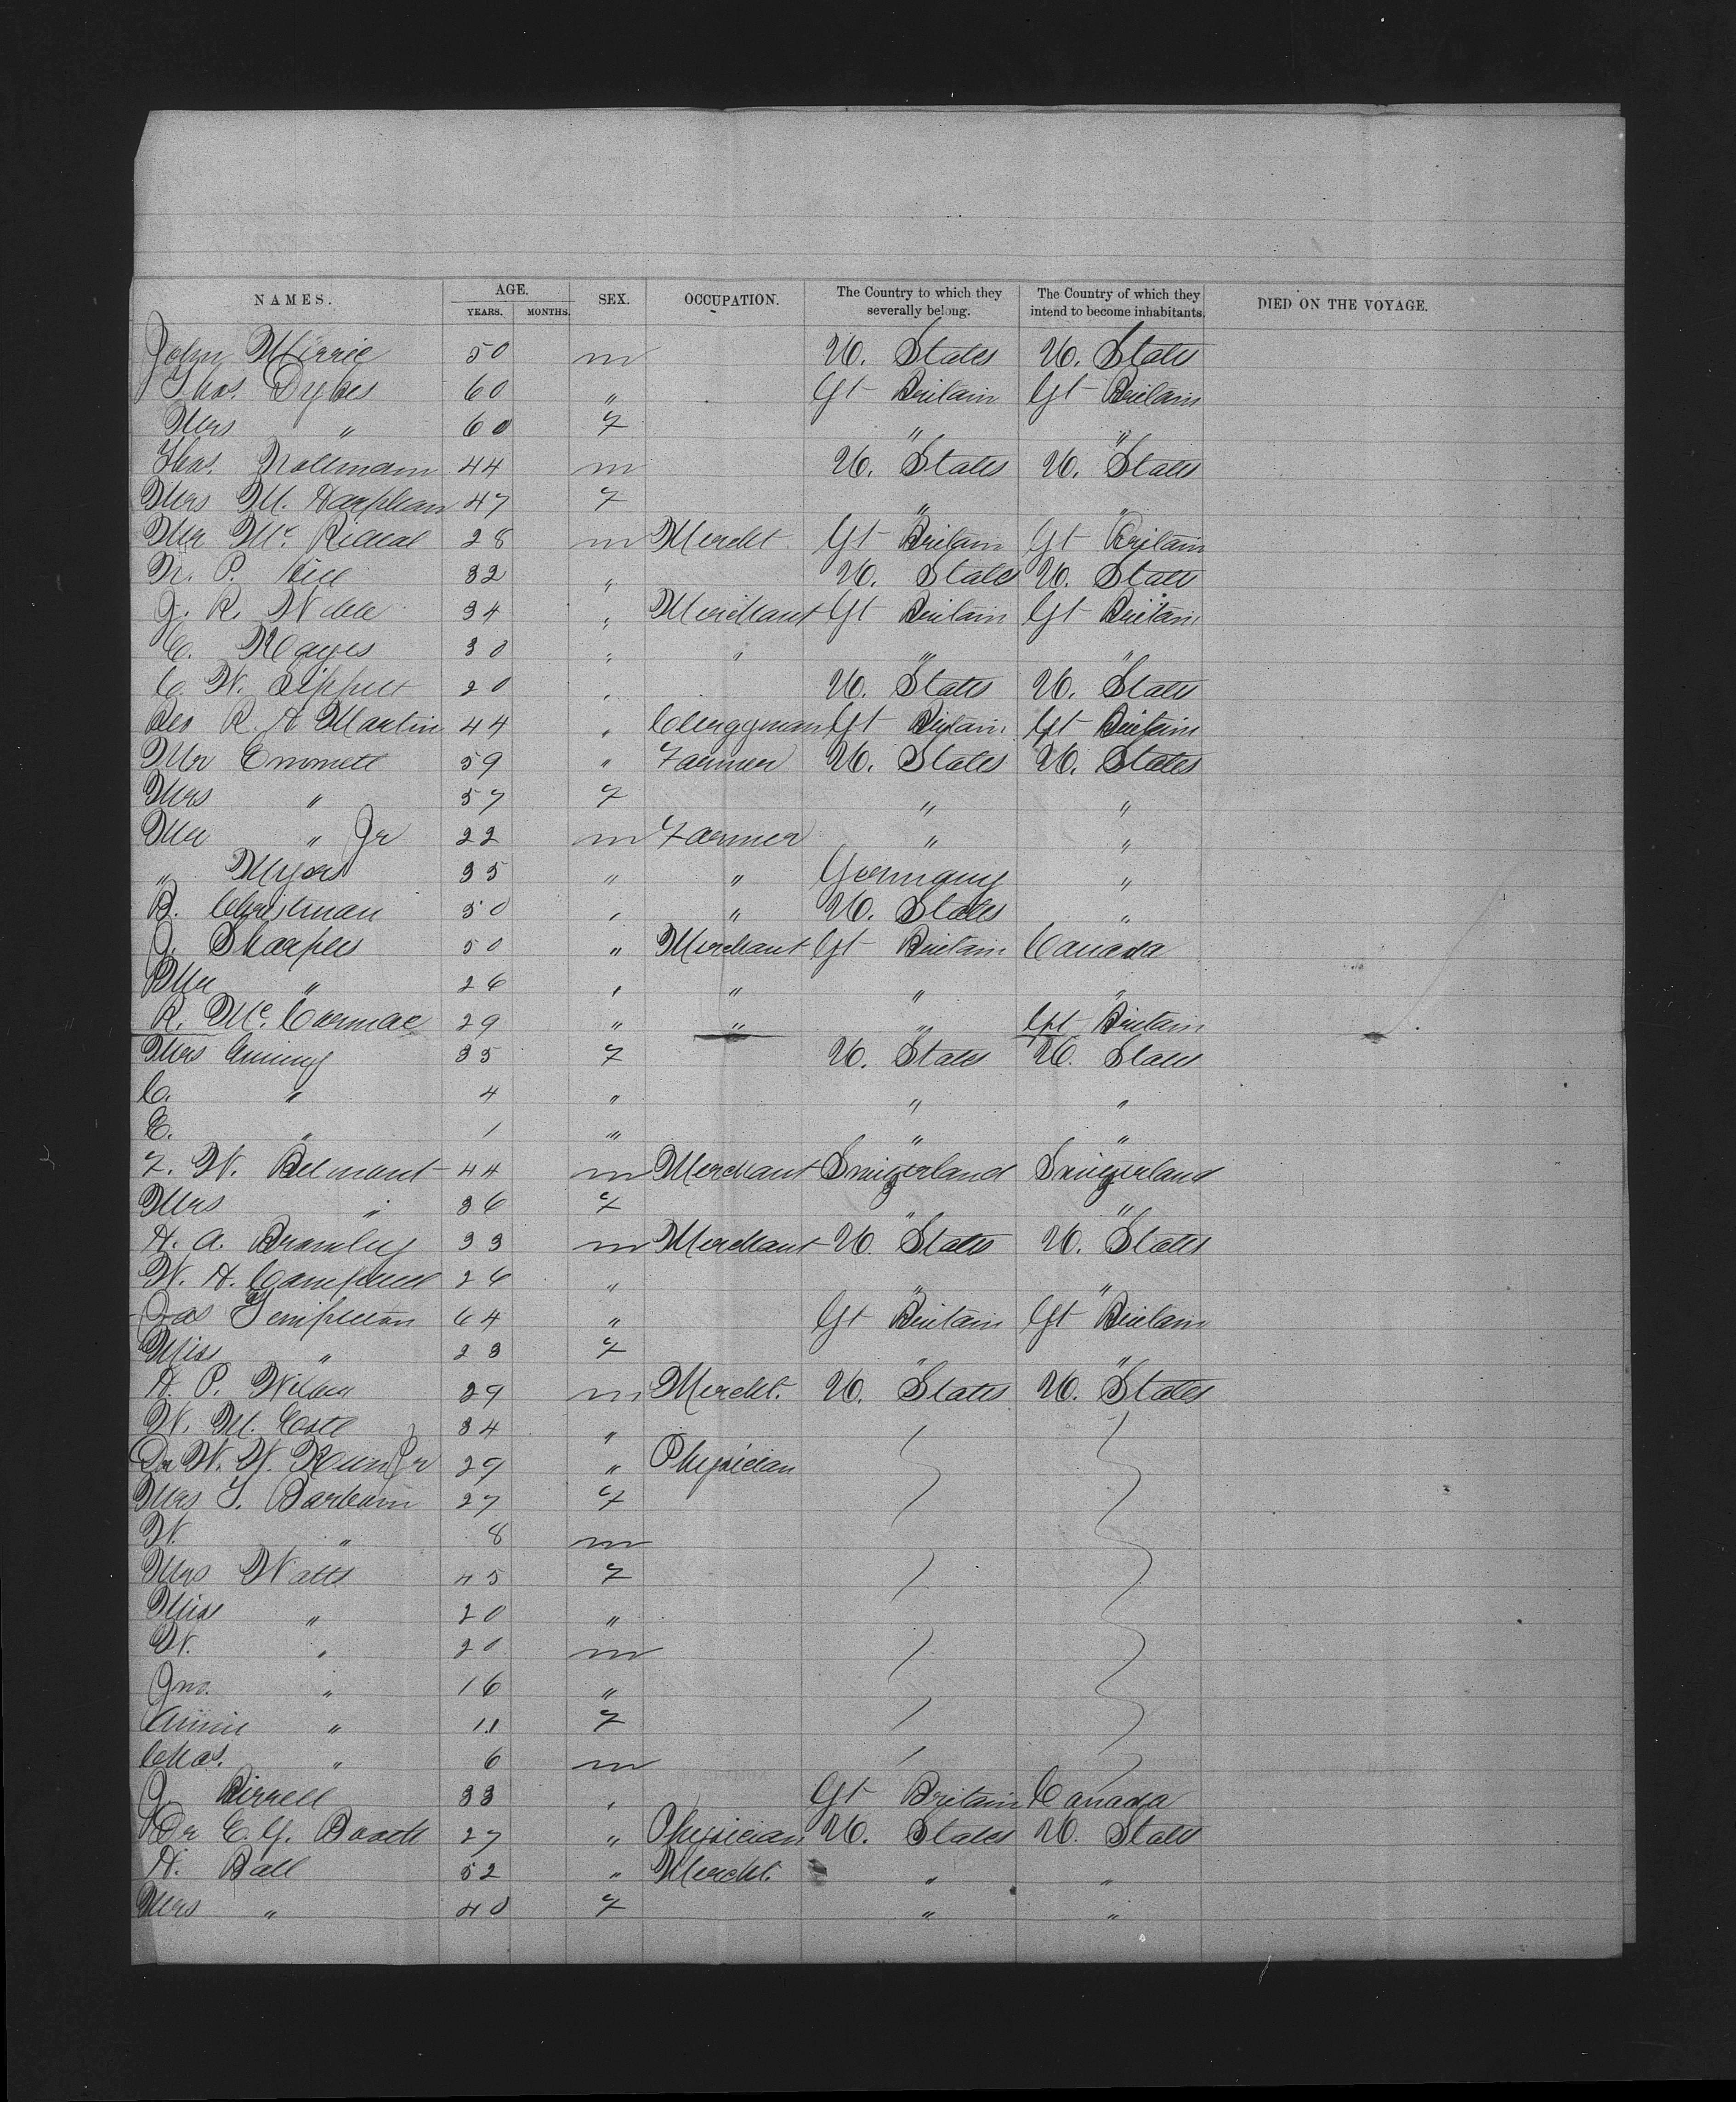 NAMES. AGE. YEARS. MONTHS. SEX. OCCUPATION. The Country to which they severally belong. The Country of which they intend to become inhabitants. DIED ON THE VOYAGE.
John Mirrie 50 m U. States U. States
Thos. Dykes 60 " Gt Britain Gt Britain
Mrs " 60 F " "
Thos. 44 m U. States U. States
Mrs M. 47 F " "
Mr Mc 28 m Mercht. Gt Britain Gt Britain
P. Hill 32 " U. States U. States
J. R. 34 " Merchant Gt Britain Gt Britain
C. Hayes 30 " " " "
C. W. 20 " U. States U. States
Rev R. A Martin 44 " Clergyman Gt Britain Gt Britain
Mr Emmett 59 " Farmer U. States U. States
Mrs " 57 F " "
Mr " Jr 22 m Farmer " "
" Myers 35 " " Germany "
B. Christman 50 " " U. States "
J. Sharples 50 " Merchant Gt Britain Canada
Mr " 26 " " " "
R. Mc.Cormac 29 " " " Gt Britain
Mrs 35 F U. States U. States
C. " 4 " " "
E. " 1 " " "
F. W. Belmont 44 m Merchant Switzerland Switzerland
Mrs " 36 F " "
H. A. Bromley 33 m Merchant U. States U. States
W. H. Campbell 26 " " "
Jas Templeton 64 " Gt Britain Gt Britain
Miss " 23 F " "
H. P. 29 m Mercht. U. States U. States
W. M. 34 "
Dr W. W. Jr 29 " Physician
Mrs 27 F
W. " 8 m
Mrs Watts 45 F
Miss " 20 "
W. " 20 m
Jno. " 16 "
Annie " 11 F
Chas. " 6 m
J. Birrell 33 " Gt Britain Canada
Dr E. Y. Booth 27 " Physician U. States U. States
H. Ball 52 " Mercht. " "
Mrs " 40 F " "